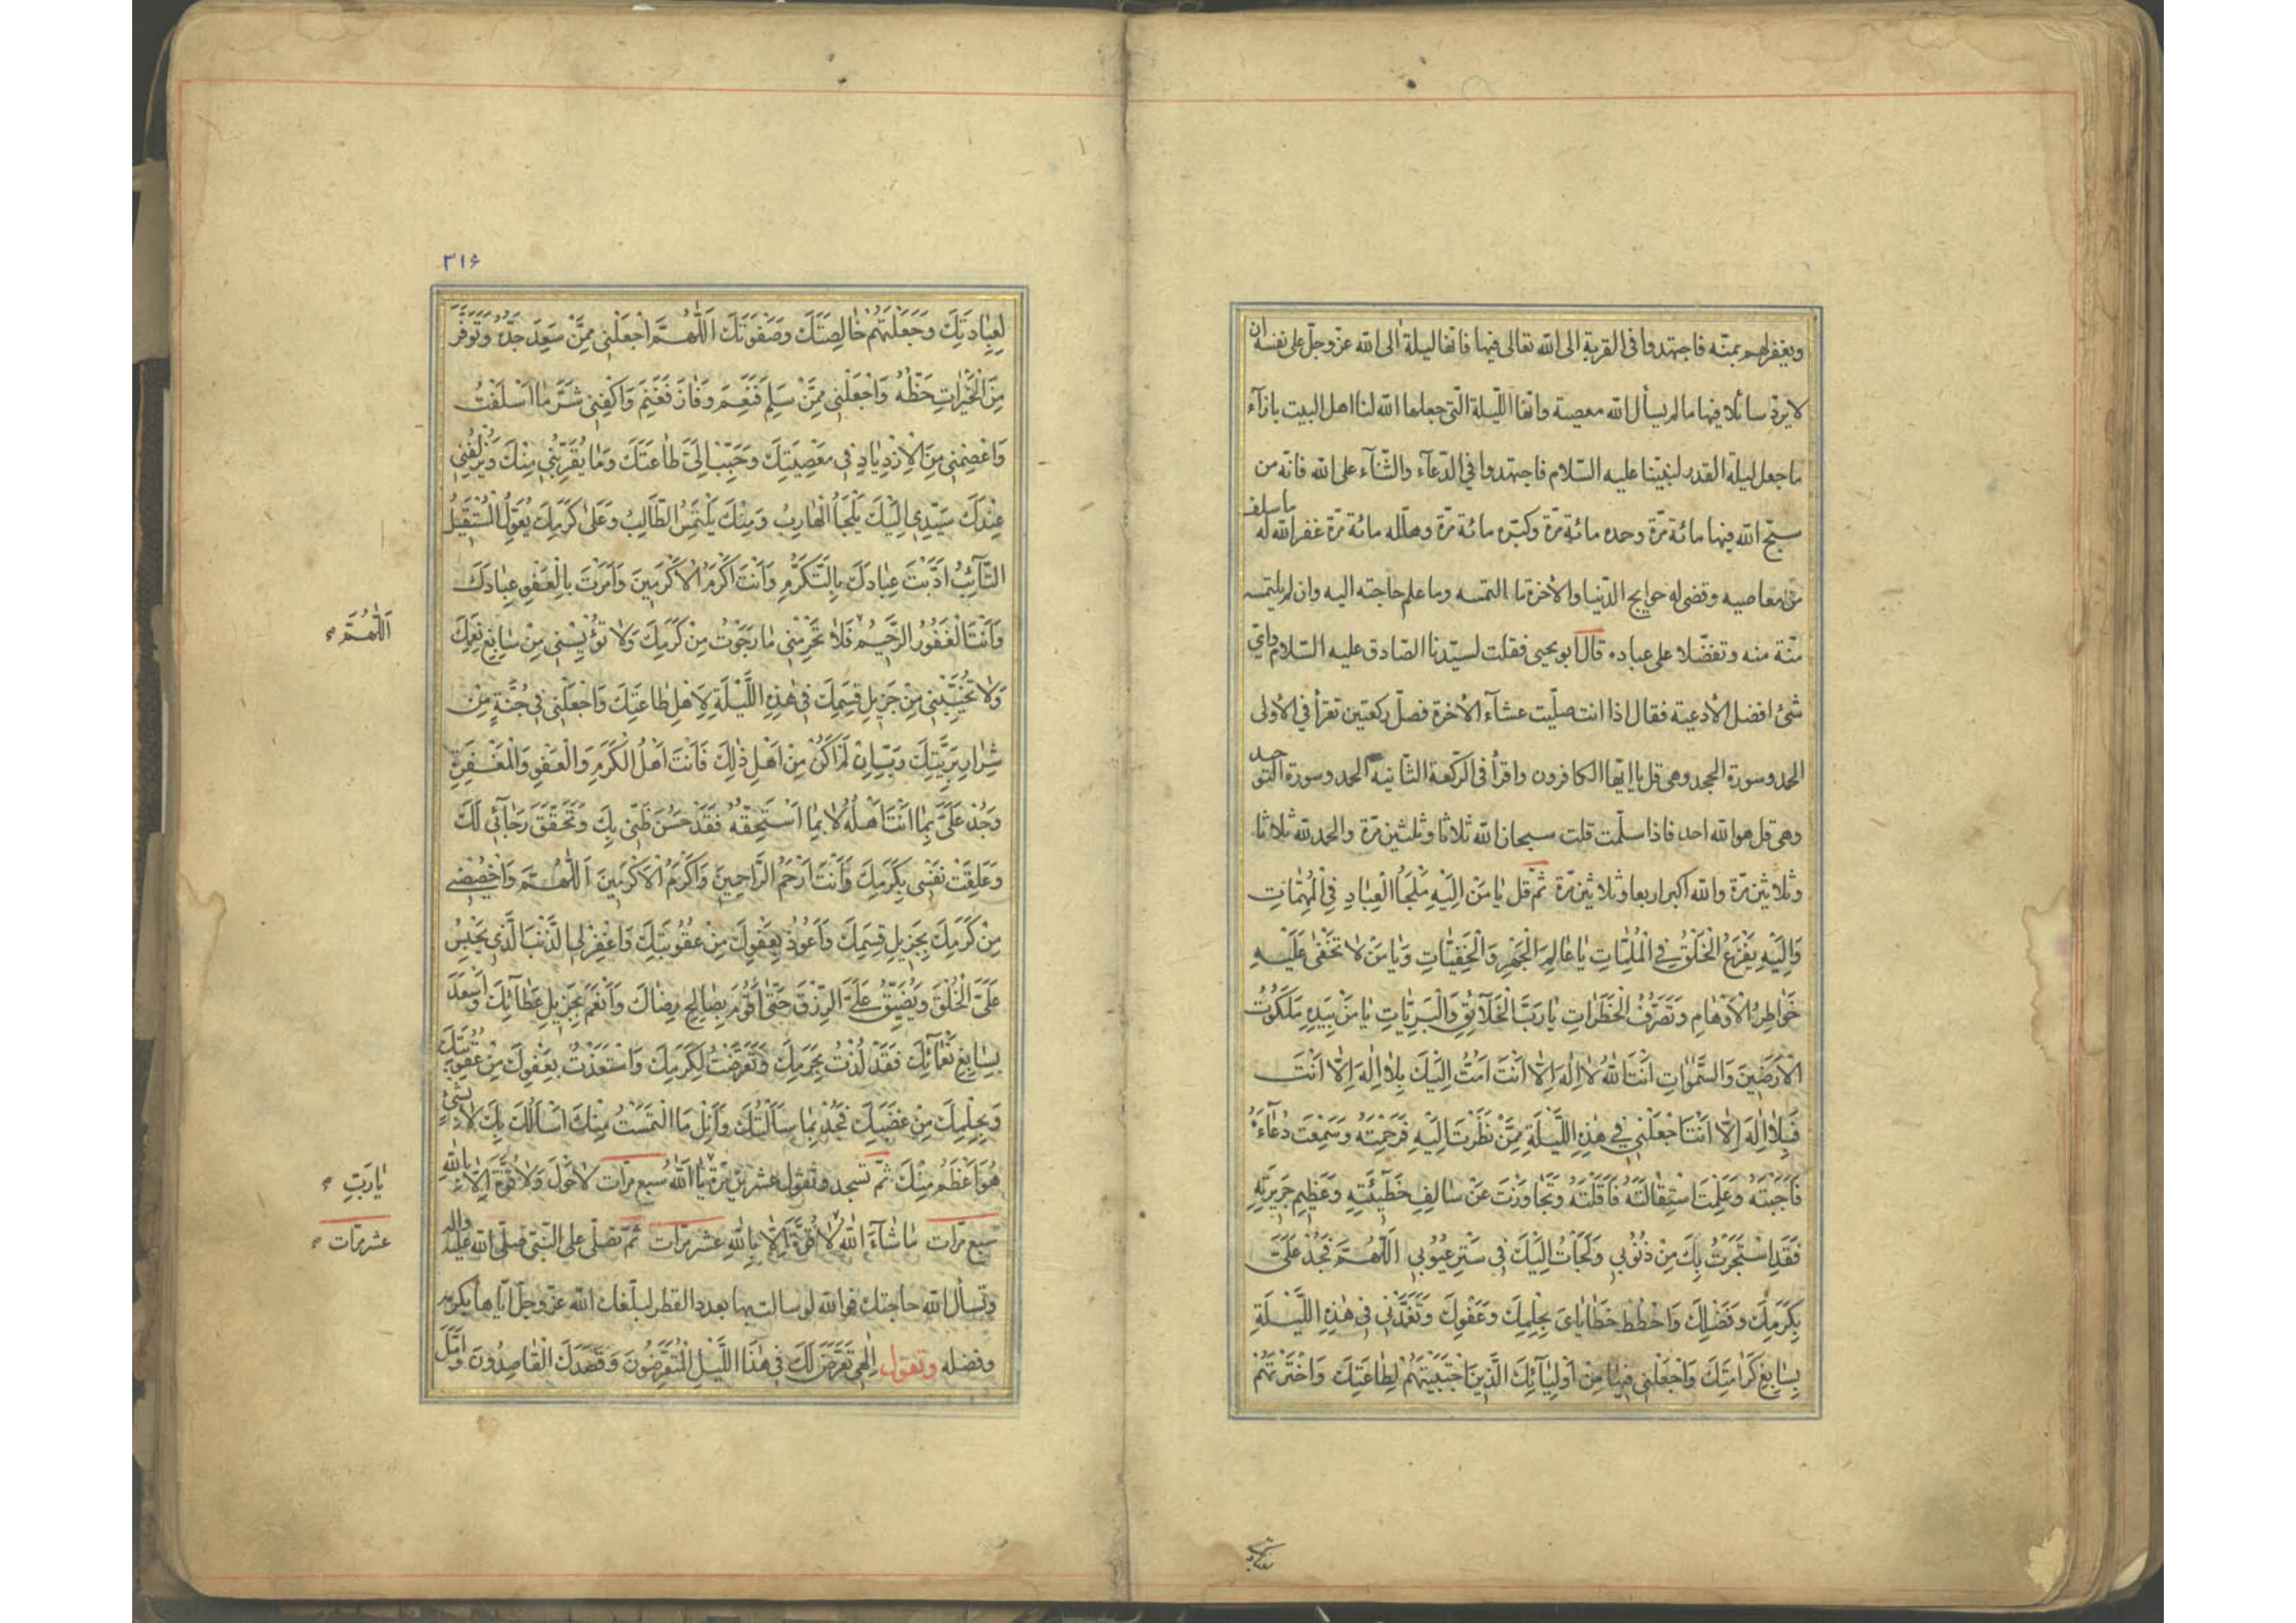 ويغفر لهم بمنّه فاجتهدوا فى القربة الى الله تعالى فيها فانها ليلة الى الله عزّ وجلّ على نفسه ان
لا يردّ سائلا فيها ما لم يسأل الله معصية وانها اللّيلة الّتى جعلها الله لنا اهل البيت بازآء
ما جعل ليلة القدر لنبيّنا عليه السّلام فاجتهدوا فى الدّعآء والثّنآء على الله فانّه من
سبّح الله فيها مائة مرّة وحده مائة مرّة وكبّره مائة مرّة وهلّله مائة مرّة غفر الله له ما سلف
من معاصيه وقضى له حوايج الدّنيا والاخرة ما التمسه وما علم حاجته اليه وان لم يلتمسه
منّة منه وتفضّلا على عباده قال ابو يحيى فقلت لسيّدنا الصّادق عليه السّلام واىّ
شئ افضل الأدعية فقال اذا انت صلّيت عشآء الأخرة فصلّ ركعتين تقرأ في الأولى
الحمد وسورة الجحد وهى قل يا ايّها الكافرون واقرأ فى الرّكعة الثانية الحمد وسورة التوحيد
وهى قل هو الله احد فاذا سلّمت قلت سبحان الله ثلاثا وثلثين مرّة والحمد لله ثلاثا
وثلاثين مرّة والله اكبر اربعا وثلاثين مرّة ثمّ قل يَا مَنْ اِلَيْهِ مَلْجَأُ الْعِبَادِ فِي الْمُهِمَّاتِ
وَاِلَيْهِ يَفْزَعُ الْخَلْقُ فِي الْمُلِمَّاتِ يَا عَالِمَ الْجَهْرِ وَالْخَفِيَّاتِ وَيَا مَنْ لَا تَخْفَى عَلَيْهِ
خَوَاطِرُ الْاَوْهَامِ وَتَصَرُّفُ الْخَطَرَاتِ يَا رَبَّ الْخَلَآئِقِ وَالْبَرِيَّاتِ يَا مَنْ بِيَدِهِ مَلَكُوتُ
الْاَرَضِينَ وَالسَّمٰوَاتِ اَنْتَ اللهُ لَا اِلٰهَ اِلَّا اَنْتَ اَمُتُّ اِلَيْكَ بِلَا اِلٰهَ اِلَّا اَنْتَ
فَبِلَا اِلٰهَ اِلَّا اَنْتَ اجْعَلْنِي فِي هٰذِهِ اللَّيْلَةِ مِمَّنْ نَظَرْتَ اِلَيْهِ فَرَحِمْتَهُ وَسَمِعْتَ دُعَآءَهُ
فَاَجَبْتَهُ وَعَلِمْتَ اسْتِقَالَتَهُ فَاَقَلْتَهُ وَتَجَاوَزْتَ عَنْ سَالِفِ خَطِيئَتِهِ وَعَظِيمِ جَرِيرَتِهِ
فَقَدِ اسْتَجَرْتُ بِكَ مِنْ ذُنُوبِي وَلَجَأْتُ اِلَيْكَ فِي سَتْرِ عُيُوبِي اَللّٰهُمَّ فَجُدْ عَلَيَّ
بِكَرَمِكَ وَفَضْلِكَ وَاحْطُطْ خَطَايَاىَ بِحِلْمِكَ وَعَفْوِكَ وَتَغَمَّدْنِي فِي هٰذِهِ اللَّيْلَةِ
بِسَابِغِ كَرَامَتِكَ وَاجْعَلْنِي فِيهَا مِنْ اَوْلِيَآئِكَ الَّذِينَ اجْتَبَيْتَهُمْ لِطَاعَتِكَ وَاخْتَرْتَهُمْ
٣١۶
لِعِبَادَتِكَ وَجَعَلْتَهُمْ خَالِصَتَكَ وَصَفْوَتَكَ اَللّٰهُمَّ اجْعَلْنِي مِمَّنْ سَعِدَ جَدُّهُ وَتَوَفَّرَ
مِنَ الْخَيْرَاتِ حَظُّهُ وَاجْعَلْنِي مِمَّنْ سَلِمَ فَنَعِمَ وَفَازَ فَغَنِمَ وَاكْفِنِي شَرَّ مَا اَسْلَفْتُ
وَاعْصِمْنِي مِنَ الْاِزْدِيَادِ فِي مَعْصِيَتِكَ وَحَبِّبْ اِلَيَّ طَاعَتَكَ وَمَا يُقَرِّبُنِي مِنْكَ وَيُزْلِفُنِي
عِنْدَكَ سَيِّدِي اِلَيْكَ يَلْجَأُ الْهَارِبُ وَمِنْكَ يَلْتَمِسُ الطَّالِبُ وَعَلَى كَرَمِكَ يُعَوِّلُ الْمُسْتَقِيلُ
التَّآئِبُ اَدَّبْتَ عِبَادَكَ بِالتَّكَرُّمِ وَاَنْتَ اَكْرَمُ الْاَكْرَمِينَ وَاَمَرْتَ بِالْعَفْوِ عِبَادَكَ
وَاَنْتَ الْغَفُورُ الرَّحِيمُ فَلَا تَحْرِمْنِي مَا رَجَوْتُ مِنْ كَرَمِكَ وَلَا تُؤْيِسْنِي مِنْ سَابِغِ نِعَمِكَ
اَللّٰهُمَّ
وَلَا تُخَيِّبْنِي مِنْ جَزِيلِ قِسَمِكَ فِي هٰذِهِ اللَّيْلَةِ لِاَهْلِ طَاعَتِكَ وَاجْعَلْنِي فِي جُنَّةٍ مِنْ
شِرَارِ بَرِيَّتِكَ رَبِّ اِنْ لَمْ اَكُنْ مِنْ اَهْلِ ذٰلِكَ فَاَنْتَ اَهْلُ الْكَرَمِ وَالْعَفْوِ وَالْمَغْفِرَةِ
وَجُدْ عَلَيَّ بِمَا اَنْتَ اَهْلُهُ لَا بِمَا اَسْتَحِقُّهُ فَقَدْ حَسُنَ ظَنِّي بِكَ وَتَحَقَّقَ رَجَآئِي لَكَ
وَعَلِقَتْ نَفْسِي بِكَرَمِكَ وَاَنْتَ اَرْحَمُ الرَّاحِمِينَ وَاَكْرَمُ الْاَكْرَمِينَ اَللّٰهُمَّ وَاخْصُصْنِي
مِنْ كَرَمِكَ بِجَزِيلِ قِسَمِكَ وَاَعُوذُ بِعَفْوِكَ مِنْ عُقُوبَتِكَ وَاغْفِرْ لِيَ الذَّنْبَ الَّذِي يَحْبِسُ
عَلَيَّ الْخُلُقَ وَيُضَيِّقُ عَلَيَّ الرِّزْقَ حَتَّى اَقُومَ بِصَالِحِ رِضَاكَ وَاَنْعَمَ بِجَزِيلِ عَطَآئِكَ وَاَسْعَدَ
بِسَابِغِ نَعْمَآئِكَ فَقَدْ لُذْتُ بِحَرَمِكَ وَتَعَرَّضْتُ لِكَرَمِكَ وَاسْتَعَذْتُ بِعَفْوِكَ مِنْ عُقُوبَتِكَ
وَبِحِلْمِكَ مِنْ غَضَبِكَ فَجُدْ بِمَا سَاَلْتُكَ وَاَنِلْ مَا الْتَمَسْتُ مِنْكَ اَسْاَلُكَ بِكَ لَا بِشَيْءٍ
هُوَ اَعْظَمُ مِنْكَ ثمّ تسجد وتقول عشرين مرّة يَا اَللهُ سبع مرّات لَا حَوْلَ وَلَا قُوَّةَ اِلَّا بِاللهِ
يَا رَبِّ
سبع مرّات مَا شَآءَ اللهُ لَا قُوَّةَ اِلَّا بِاللهِ عشر مرّات ثمّ تصلّى على النّبىّ صلّى الله عليه واله
عشر مرّات
وتسأل الله حاجتك فوالله لو سالت بها بعدد القطر لبلّغك الله عزّ وجلّ ايّاها بكرمه
وفضله وتقول اِلٰهِي تَعَرَّضَ لَكَ فِي هٰذَا اللَّيْلِ الْمُتَعَرِّضُونَ وَقَصَدَكَ الْقَاصِدُونَ وَاَمَّلَ